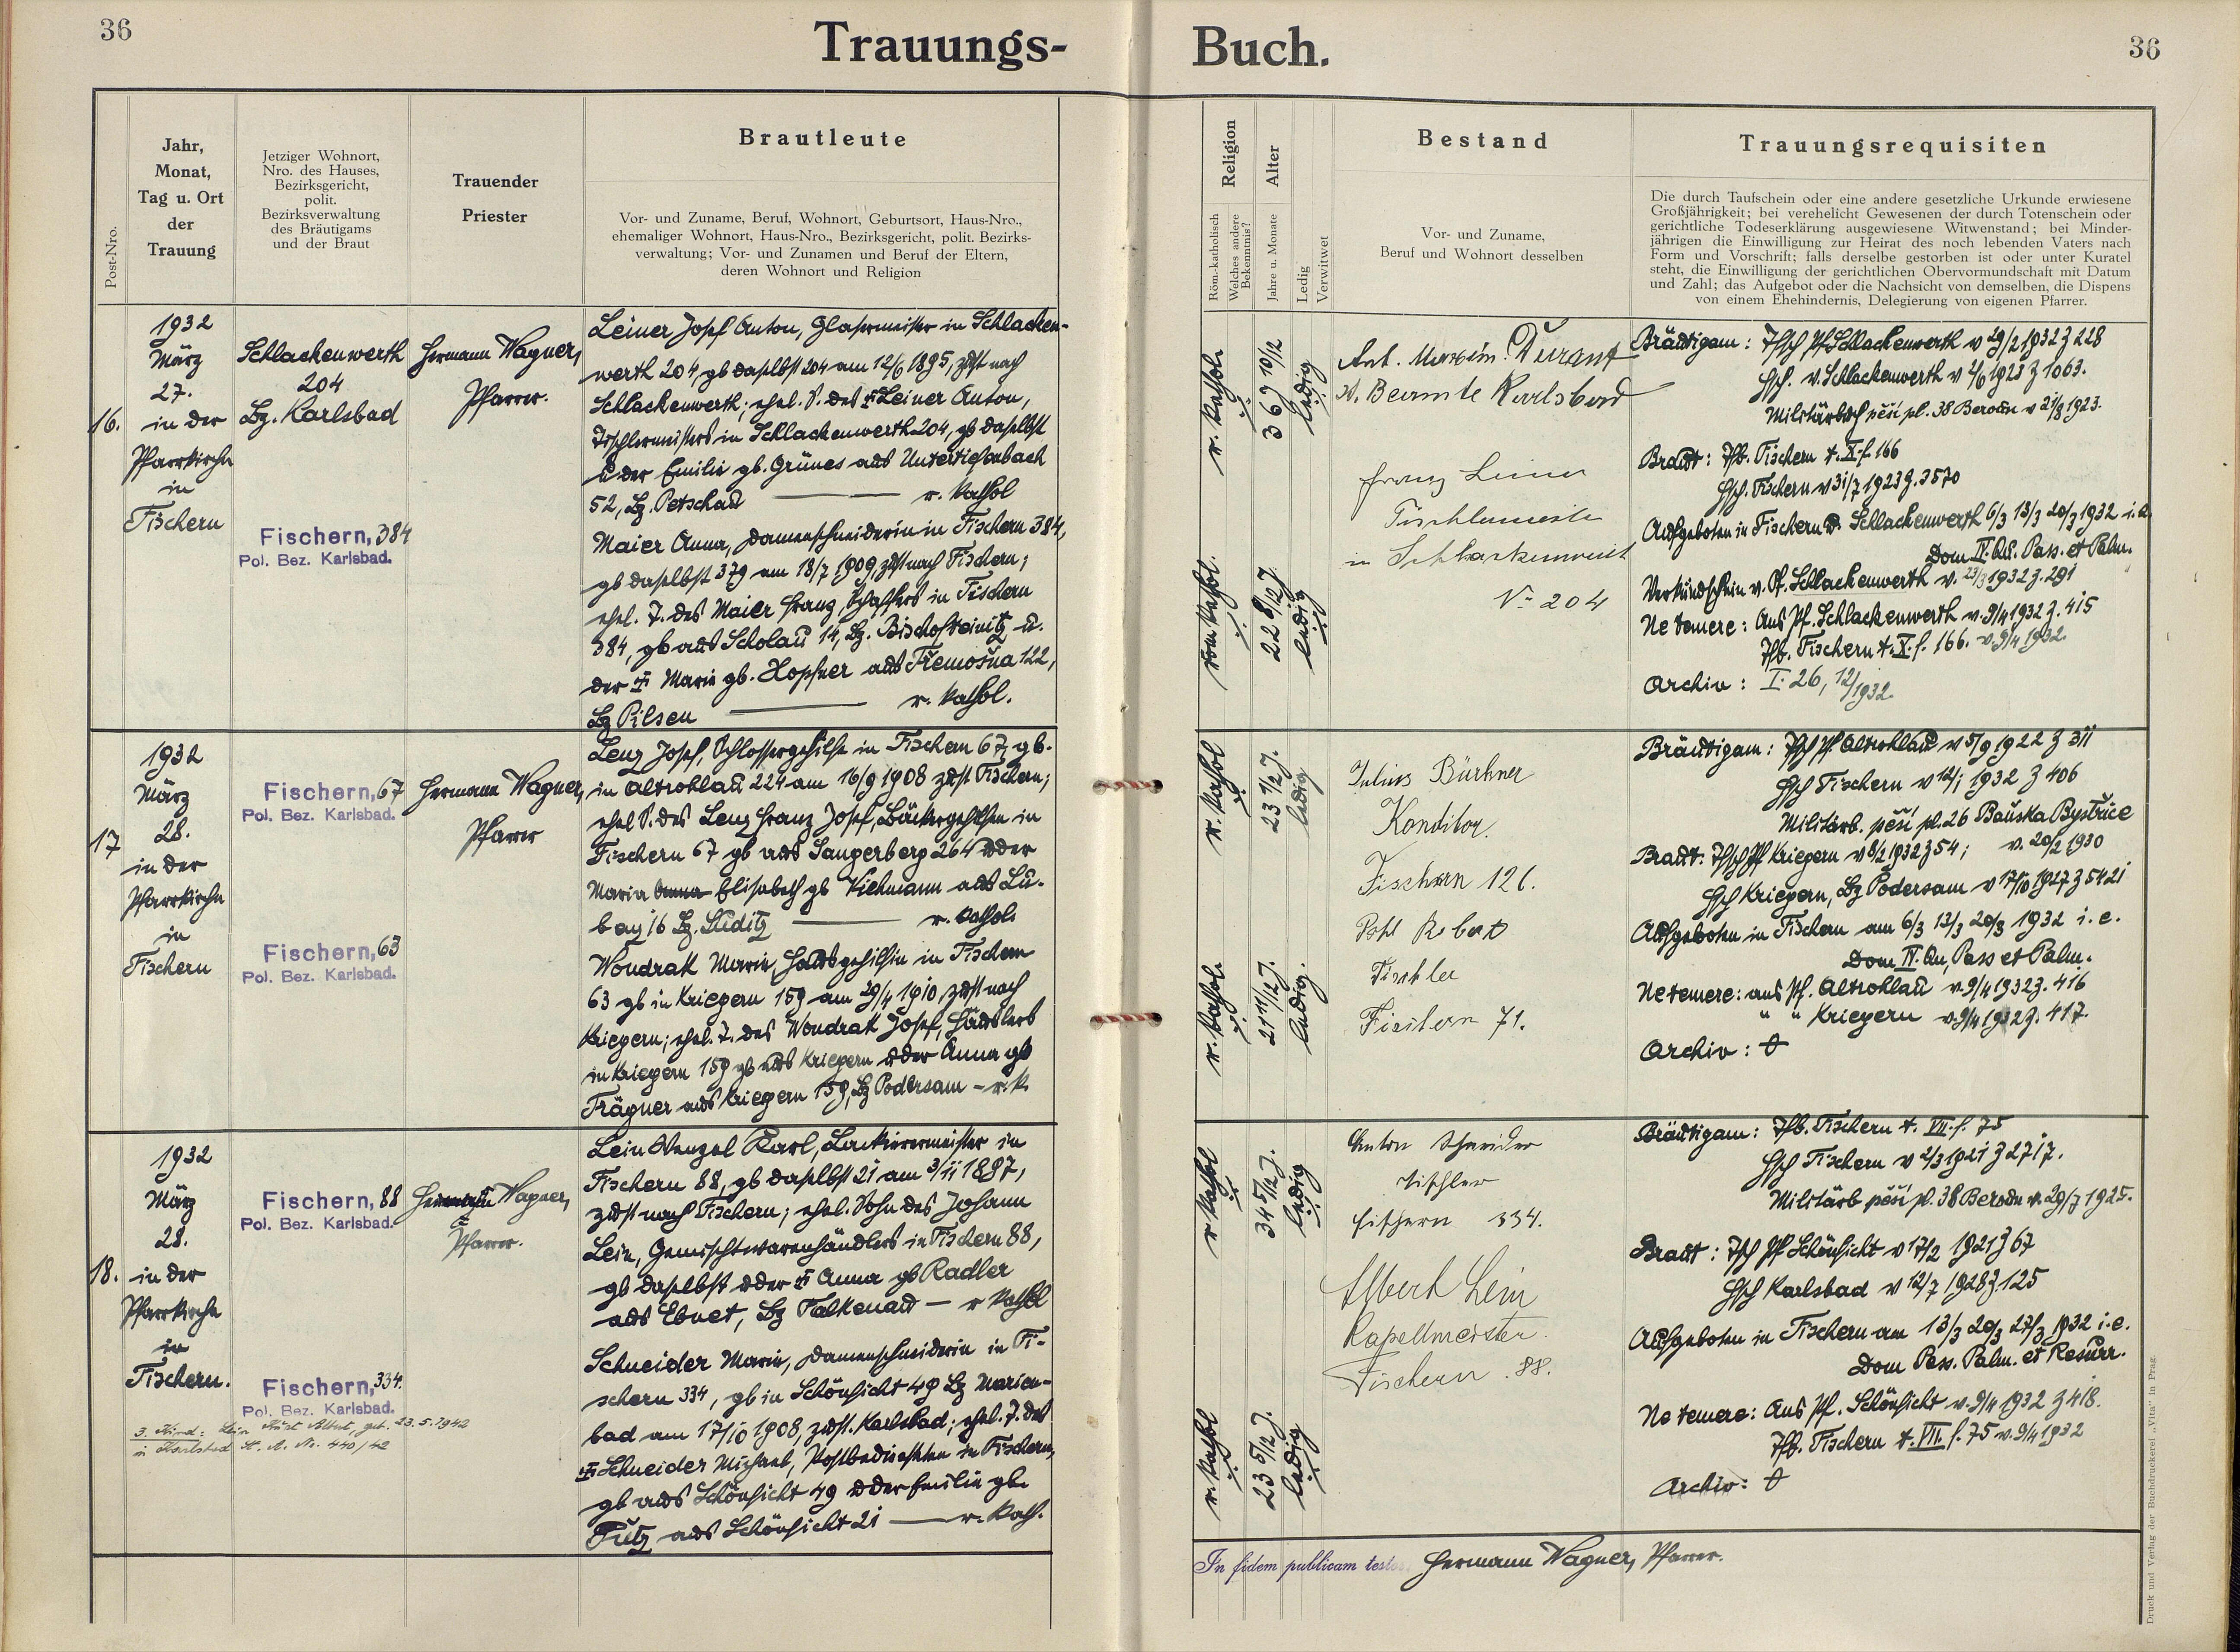 36
Trauungs-
Buch.
36
Post-Nro.
Jahr,
Monat,
Tag u. Ort
der
Trauung
Jetziger Wohnort,
Nro. des Hauses,
Bezirksgericht,
polit.
Bezirksverwaltung
des Bräutigams
und der Braut
Trauender
Priester
Brautleute
Vor- und Zuname, Beruf, Wohnort, Geburtsort, Haus-Nro.,
ehemaliger Wohnort, Haus-Nro., Bezirksgericht, polit. Bezirks-
verwaltung; Vor- und Zunamen und Beruf der Eltern,
deren Wohnort und Religion
Religion
Röm.-katholisch
Welches andere
Bekenntnis?
Alter
Jahre u. Monate
Ledig
Verwitwet
Bestand
Vor- und Zuname,
Beruf und Wohnort desselben
Trauungsrequisiten
Die durch Taufschein oder eine andere gesetzliche Urkunde erwiesene
Großjährigkeit; bei verehelicht Gewesenen der durch Totenschein oder
gerichtliche Todeserklärung ausgewiesene Witwenstand; bei Minder-
jährigen die Einwilligung zur Heirat des noch lebenden Vaters nach
Form und Vorschrift; falls derselbe gestorben ist oder unter Kuratel
steht, die Einwilligung der gerichtlichen Obervormundschaft mit Datum
und Zahl; das Aufgebot oder die Nachsicht von demselben, die Dispens
von einem Ehehindernis, Delegierung von eigenen Pfarrer.
16.
1932
März
27.
in der
Pfarrkirche
in
Fischern
Schlackenwerth
204
Bz. Karlsbad
Fischern, 384
Pol. Bez. Karlsbad.
Hermann Wagner,
Pfarrer.
Leiner Josef Anton, Glasermeister in Schlacken-
werth 204, gb daselbst 204 am 12/6 1895, zust nach
Schlackenwerth; ehel. S. des ✝ Leiner Anton,
Tischlermeisters in Schlackenwerth 204, gb daselbst
u der Emilie gb. Grünes aus Untertiefenbach
52, Bz. Petschau — r. kathol
Maier Anna, Damenschneiderin in Fischern 384,
gb daselbst 379 am 18/7 1909, zust nach Fischern;
ehel. T. des Maier Franz, Schaffers in Fischern
384, gb aus Scholau 14, Bz. Bischofteinitz u.
der ✝ Marie gb. Hopfner aus Třemošna 122,
Bz Pilsen — r. kathol.
r. kathol.
36 9 10/12
ledig
röm kathol.
22 8/12 J.
ledig
Ant. Maxim. Durant
Beamte Karlsbad
Franz Leiner
Tischlermeister
in Schlackenwerth
No 204
Bräutigam: Tfsch Pf Schlackenwerth v 29/2 1932 z 228
Hsch. v. Schlackenwerth v 2/6 1923 z 1063.
Militärbuch pěší pl. 38 Beroun v 21/8 1923.
Braut: Tfb. Fischern t. X. f. 166
Hsch. Fischern v 31/7 1923 z. 3570
Aufgeboten in Fischern u. Schlackenwerth 6/3 13/3 20/3 1932 i.e.
Dom IV. Qu. Pass. et Palm.
Verkündschein v. Pf. Schlackenwerth v. 23/3 1932 z. 291
Ne temere: Aus Pf. Schlackenwerth v. 9/4 1932 z. 415
Tfb. Fischern t. X. f. 166. v. 9/4 1932.
Archiv: I. 26, 12/1932.
17
1932
März
28.
in der
Pfarrkirche
in
Fischern
Fischern, 67
Pol. Bez. Karlsbad.
Fischern, 63
Pol. Bez. Karlsbad.
Hermann Wagner,
Pfarrer
Lenz Josef, Schlossergehilfe in Fischern 67, gb.
in Altrohlau 224 am 16/9 1908 zust Fischern;
ehel S. des Lenz Franz Josef, Bäckergehilfen in
Fischern 67 gb aus Sangerberg 264 u der
Maria Anna Elisabeth gb Viehmann aus Lu-
bau 16 Bz. Luditz — r. kathol.
Wondrak Marie, Hausgehilfin in Fischern
63 gb in Kriegern 159 am 29/4 1910, zust nach
Kriegern; ehel. T. des Wondrak Josef, Häuslers
in Kriegern 159 gb aus Kriegern u der Anna gb
Trägner aus Kriegern 159, Bz Podersam — r. k.
r. kathol
23 7/12 J.
ledig
r. kathol.
21 11/12 J.
ledig.
Julius Bürkner
Konditor.
Fischern 126.
Pohl Robert
Tischler
Fischern 71.
Bräutigam: Tfsch Pf Altrohlau v 5/9 1922 z 311
Hsch Fischern v 12/1 1932 z 406
Militärb. pěší pl. 26 Baňska Bystřice
v. 20/2 1930
Braut: Tfsch Pf Kriegern v 8/2 1932 z 54;
Hsch Kriegern, Bz Podersam v 17/10 1927 z 5421
Aufgeboten in Fischern am 6/3 13/3 20/3 1932 i.e.
Dom IV. Qu, Pass et Palm.
Ne temere: aus Pf. Altrohlau v. 9/4 1932 z. 416
" " Kriegern v. 9/4 1932 z. 417.
Archiv: 0
18.
1932
März
28.
in der
Pfarrkirche
in
Fischern.
3. Kind: Lein Kurt Albert, geb. 23.5.1942
in Karlsbad St. A. Nr. 440/42
Fischern, 88
Pol. Bez. Karlsbad.
Fischern, 334.
Pol. Bez. Karlsbad.
Hermann Wagner,
Pfarrer.
Lein Wenzel Karl, Lackierermeister in
Fischern 88, gb daselbst 21 am 3/11 1897,
zust nach Fischern; ehel. Sohn des Johann
Lein, Gemischtwarenhändlers in Fischern 88,
gb daselbst u der ✝ Anna gb Radler
aus Ebnet, Bz Falkenau — r kathol
Schneider Marie, Damenschneiderin in Fi-
schern 334, gb in Schönficht 49 Bz Marien-
bad am 17/10 1908, zust. Karlsbad; ehel. T. des
✝ Schneider Michael, Postbediensteten in Fischern,
gb aus Schönficht 49 u der Emilie gb.
Tutz aus Schönficht 21 — r. kath.
r kathol
34 5/12 J.
ledig
r. kathol
23 5/12 J.
ledig
Anton Schneider
Tischler
Fischern 334.
Albert Lein
Kapellmeister.
Fischern. 88.
Bräutigam: Tfb. Fischern t. VII. f. 75
Hsch Fischern v 2/3 1921 z 2717.
Militärb pěší pl. 38 Beroun v. 29/7 1925.
Braut: Tfsch Pf Schönficht v 17/2 1921 z 67
Hsch Karlsbad v 12/7 1928 z. 125
Aufgeboten in Fischern am 13/3 20/3 27/3 1932 i.e.
Dom Pass. Palm. et Resurr.
Ne temere: Aus Pf. Schönficht v. 9/4 1932 z 418.
Tfb. Fischern t. VII. f. 75 v. 9/4 1932
Archiv: 0
In fidem publicam testor. Hermann Wagner, Pfarrer.
Druck und Verlag der Buchdruckerei „Vita" in Prag.